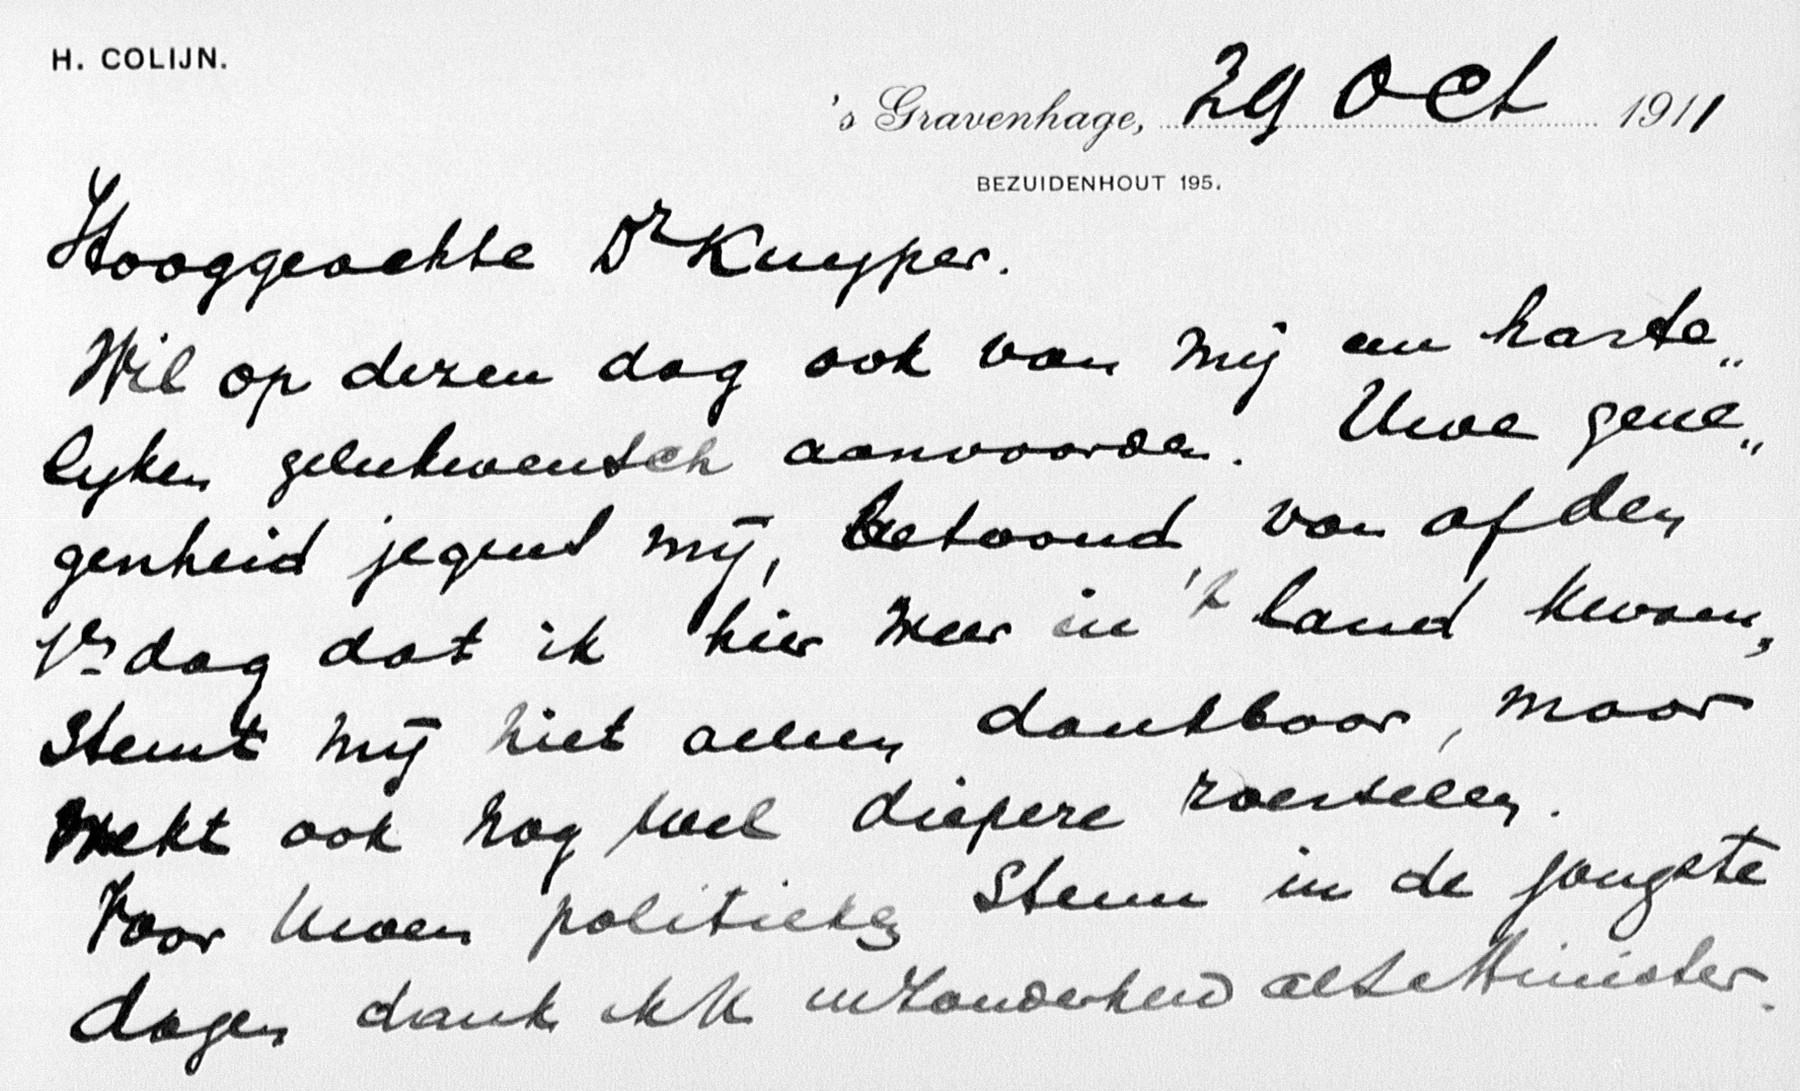 H. COLIJN.
's Gravenhage, 29 Oct 1911
BEZUIDENHOUT 195.
Hooggeachte Dr Kuyper.
Wil op dezen dag ook van mij een harte„
lyken gelukwensch aanvaarden. Uwe gene„
genheid jegens mij, betoond van af den
1en dag dat ik hier weer in 't land kwam,
stemt mij niet alleen dankbaar, maar
wekt ook nog wel diepere roerselen.
Voor Uwen politieken steun in de jongste
dagen dank ik U inzonderheid als Minister.